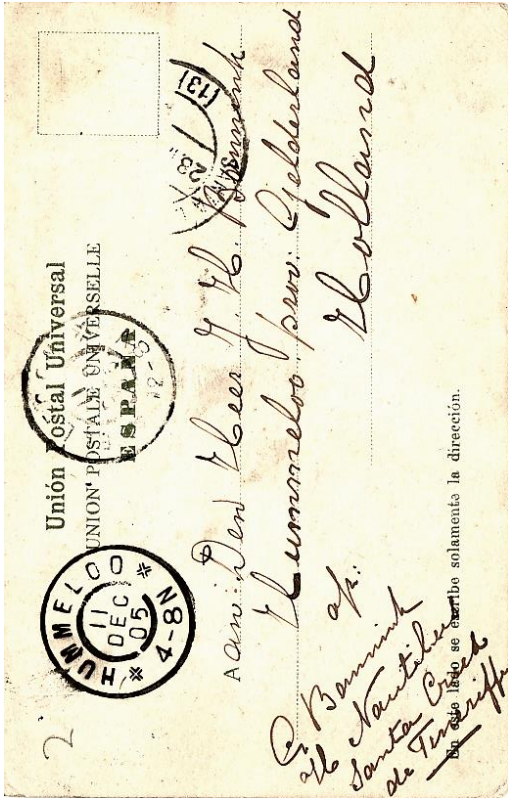 Unión Postal Universal
UNION POSTALE UNIVERSELLE
ESPAÑA
HUMMELOO
11
DEC
05
4-8N
12-8
23
(13)
2
Aan: Den Heer J. H. Bannink
Hummeloo prov: Gelderland
Holland
afz:
Bannink
Nautilus
Santa Cruz
de Teneriffe
En este lado se escribe solamente la dirección.